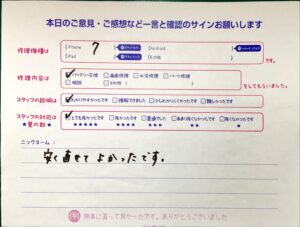 本日のご意見・ご感想など一言と確認のサインお願いします
修理機種は
iPhone 7
Android
iPad
その他
です。
修理内容は
バッテリー交換 画面修理 水没修理 パーツ修理
その他
をしてもらいました。
スタッフの説明は
わかりやすかったです 理解できました 少しわかりにくかったです 難しかったです
スタッフの対応は
★星の数★
とても良かったです 良かったです 普通でした あまり良くなかったです 良くなかったです
★★★★★ ★★★★ ★★★ ★★ ★
ニックネーム:
安く直せてよかったです。
例
無事に直って良かったです。ありがとうございました